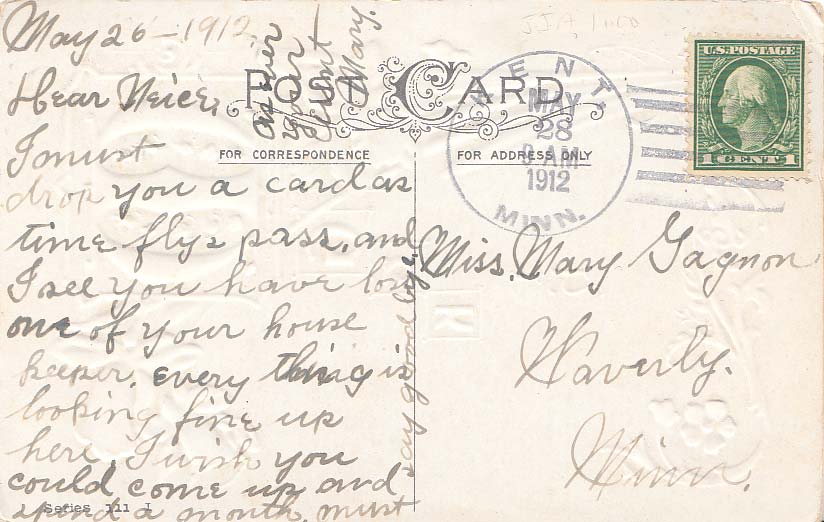 May 26-1912
Dear Neice,
I must
drop you a card as
time flys pass, and
I see you have lost
one of your house
keeper. every thing is
looking fine up
here, I wish you
could come up and
spend a month, must
say good bye.
as ever
your
Aunt
Mary.
POST CARD
FOR CORRESPONDENCE
FOR ADDRESS ONLY
KENT,
MAY
28
9 AM
1912
MINN.
U.S. POSTAGE
1 CENT 1
Miss. Mary Gagnon
Waverly.
Minn.
Series 111 I